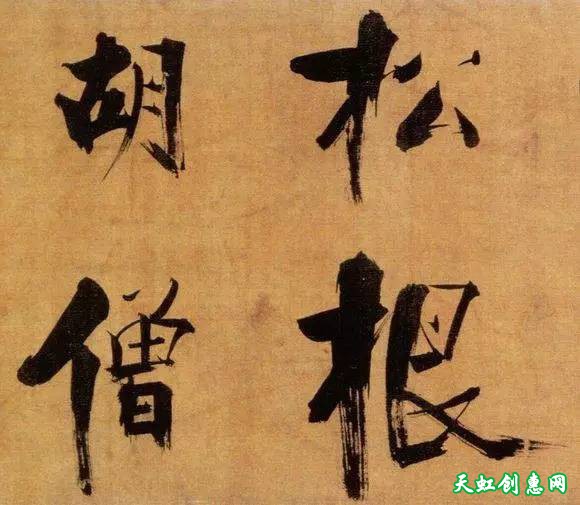 松根
胡僧
天虹创惠网